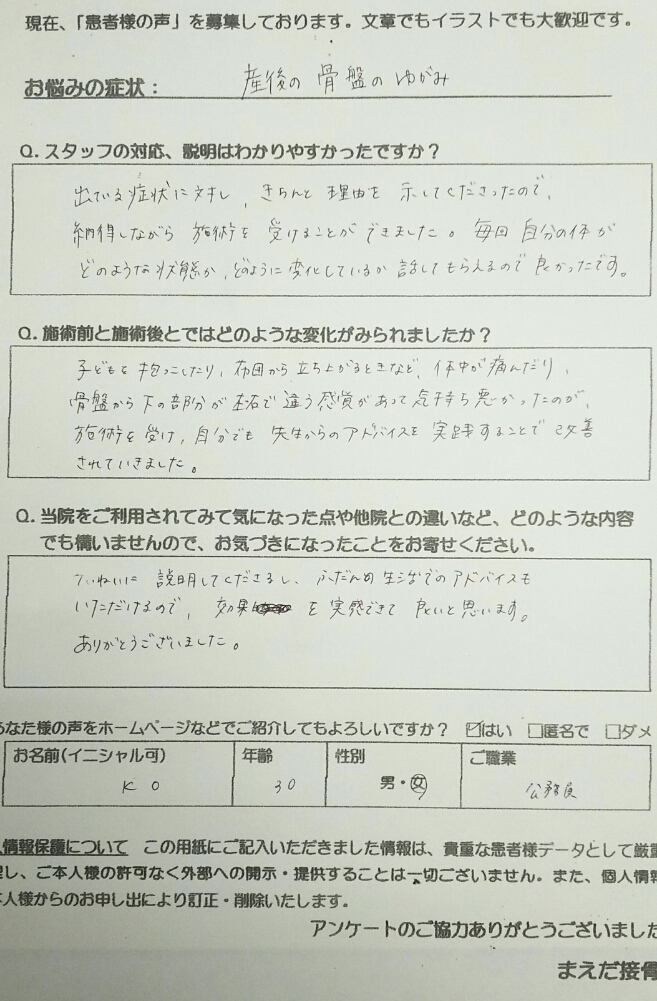 現在、「患者様の声」を募集しております。文章でもイラストでも大歓迎です。
お悩みの症状： 産後の骨盤のゆがみ
Q. スタッフの対応、説明はわかりやすかったですか？
出ている症状に対し、きちんと理由を示してくださったので、
納得しながら施術を受けることができました。毎回自分の体が
どのような状態か、どのように変化しているか話してもらえるので良かったです。
Q. 施術前と施術後とではどのような変化がみられましたか？
子どもを抱っこしたり、布団から立ち上がるときなど、体中が痛んだり、
骨盤から下の部分が左右で違う感覚があって気持ち悪かったのが、
施術を受け、自分でも先生からのアドバイスを実践することで改善
されていきました。
Q. 当院をご利用されてみて気になった点や他院との違いなど、どのような内容
でも構いませんので、お気づきになったことをお寄せください。
ていねいに説明してくださるし、ふだんの生活でのアドバイスも
いただけるので、効果を実感できて良いと思います。
ありがとうございました。
あなた様の声をホームページなどでご紹介してもよろしいですか？ ☑はい □匿名で □ダメ
お名前（イニシャル可） 年齢 性別 ご職業
K O 30 男・女 公務員
人情報保護について この用紙にご記入いただきました情報は、貴重な患者様データとして厳重
理し、ご本人様の許可なく外部への開示・提供することは一切ございません。また、個人情報
本人様からのお申し出により訂正・削除いたします。
アンケートのご協力ありがとうございました
まえだ接骨